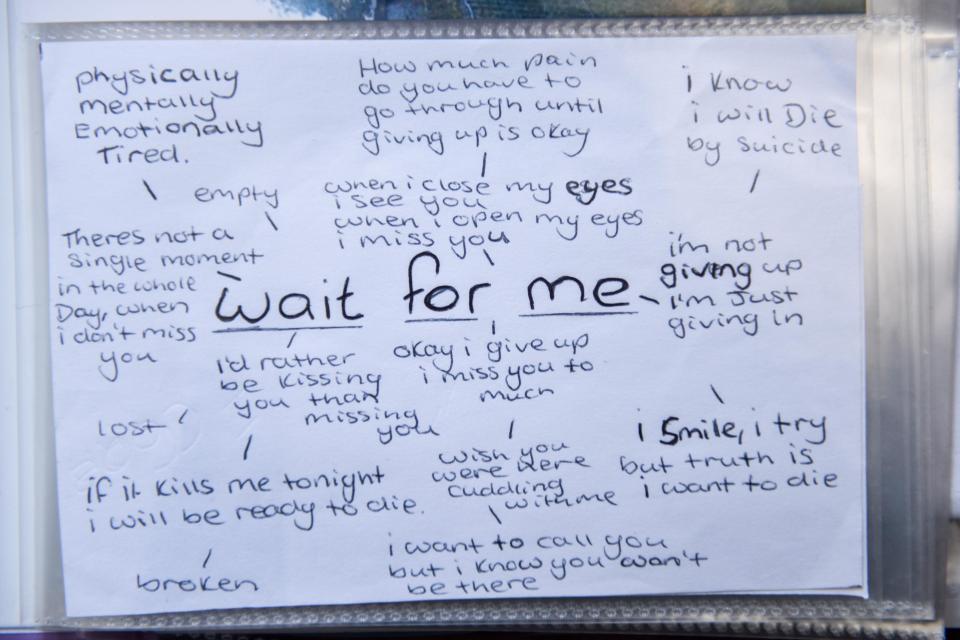 physically
mentally
Emotionally
Tired.
empty
How much pain
do you have to
go through until
giving up is okay
i know
i will Die
by suicide
when i close my eyes
i see you
when i open my eyes
i miss you
Theres not a
single moment
in the whole
Day, when
i don't miss
you
wait for me
i'm not
giving up
I'm Just
giving in
i'd rather
be kissing
you than
missing
you
okay i give up
i miss you to
much
lost
i smile, i try
but truth is
i want to die
wish you
were here
cuddling
with me
if it kills me tonight
i will be ready to die.
i want to call you
but i know you won't
be there
broken